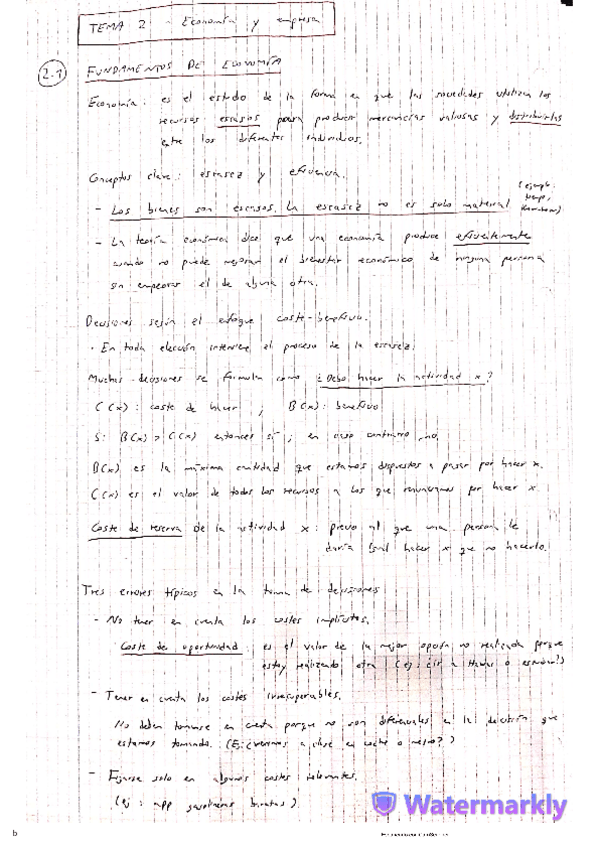 TEMA 2 - Economía y empresa
2.1 FUNDAMENTOS DE ECONOMÍA
Economía: es el estudio de la forma en que las sociedades utilizan los
recursos escasos para producir mercancías valiosas y distribuirlas
entre los diferentes individuos.
Conceptos clave: escasez y eficiencia.
- Los bienes son escasos. La escasez no es solo material (ejemplo:
tiempo,
- La teoría económica dice que una economía produce eficientemente
cuando no puede mejorar el bienestar económico de ninguna persona
sin empeorar el de alguna otra.
Decisiones según el enfoque coste-beneficio.
· En toda elección interviene el proceso de la escasez.
Muchas decisiones se formulan como ¿Debo hacer la actividad x?
C(x): coste de hacer ; B(x): beneficio
Si B(x) > C(x) entonces sí ; en caso contrario, no.
B(x) es la máxima cantidad que estamos dispuestos a pagar por hacer x.
C(x) es el valor de todos los recursos a los que renunciamos por hacer x.
Coste de reserva de la actividad x: precio al que una persona le
daría igual hacer x que no hacerlo.
Tres errores típicos en la toma de decisiones
- No tener en cuenta los costes implícitos.
Coste de oportunidad: es el valor de la mejor opción no realizada porque
estoy realizando otra (ej: ¿ir a o estudiar?)
- Tener en cuenta los costes irrecuperables.
No deben tomarse en cuenta porque no son diferenciales en la decisión que
estamos tomando. (Ej: ¿venimos a clase en coche o metro?)
- Fijarse solo en algunos costes relevantes.
(ej: app gasolineras baratas)
Watermarkly